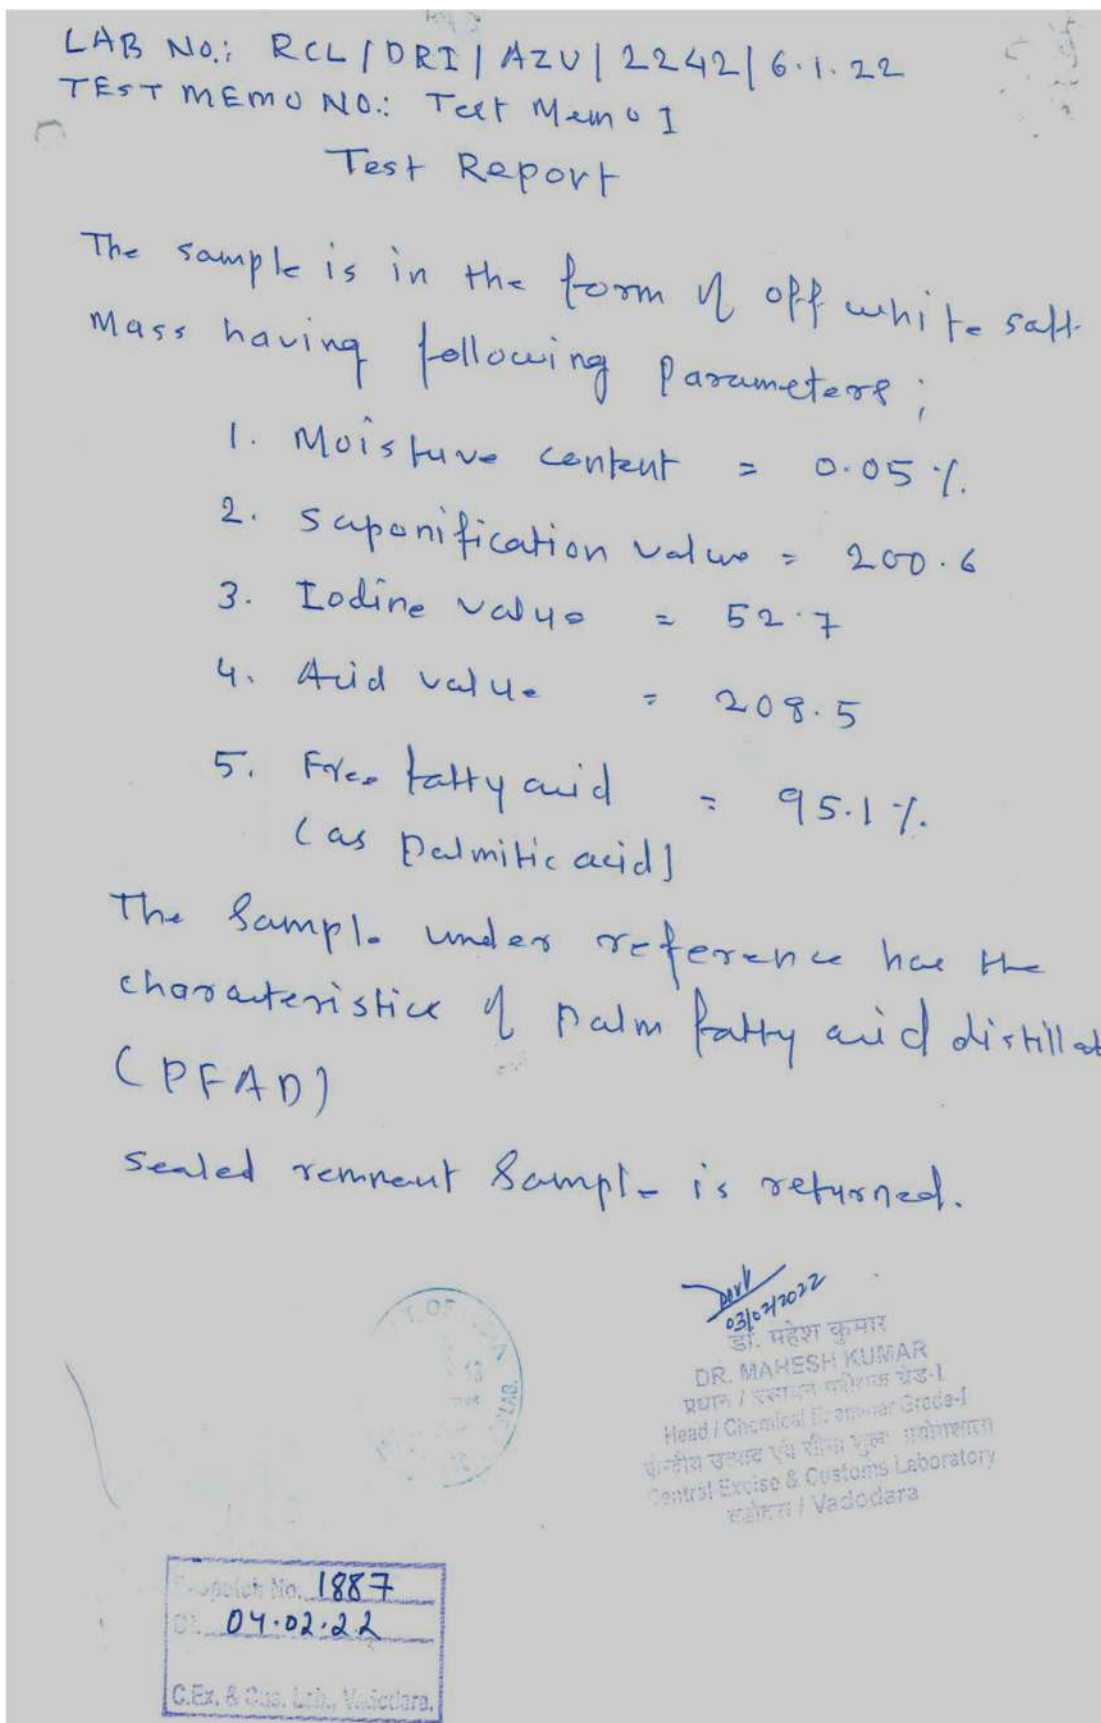 LAB NO.: RCL/DRI/AZU/2242/6.1.22
TEST MEMO NO.: Test Memo I
Test Report
The sample is in the form of off white soft
Mass having following parameters;
1. Moisture content = 0.05 %.
2. Saponification value = 200.6
3. Iodine value = 52.7
4. Acid value = 208.5
5. Free fatty acid = 95.1 %.
(as Palmitic acid)
The Sample under reference has the
characteristics of Palm fatty acid distillat
(PFAD)
Sealed remnant Sample is returned.
03/02/2022
डॉ. महेश कुमार
DR. MAHESH KUMAR
प्रधान / रसायन परीक्षक ग्रेड-I
Head / Chemical Examiner Grade-I
केन्द्रीय उत्पाद एवं सीमा शुल्क प्रयोगशाला
Central Excise & Customs Laboratory
वडोदरा / Vadodara
Despatch No. 1887
Dt. 04.02.22
C.Ex. & Cus. Lab., Vadodara.